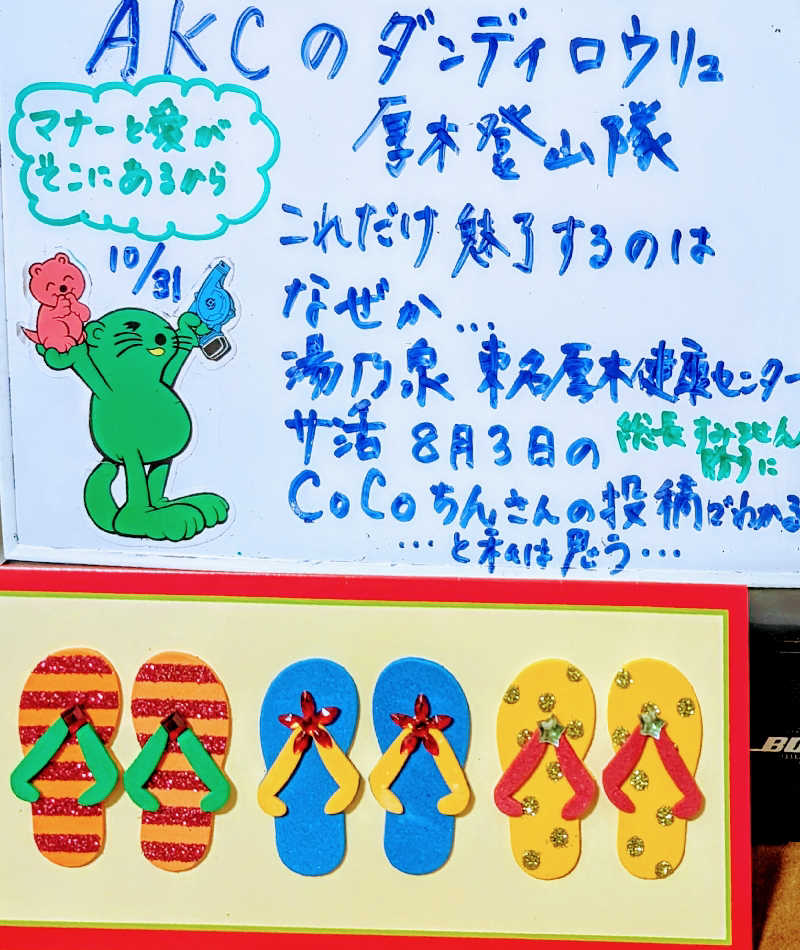 AKCのダンディロウリュ
厚木登山隊
マナーと愛が
そこにあるから
10/31
これだけ魅了するのは
なぜか…
湯乃泉 東名厚木健康センター
サ活 8月3日の
総長 すみません
勝手に
CoCoちんさんの投稿でわかる
…と私は思う…
BO